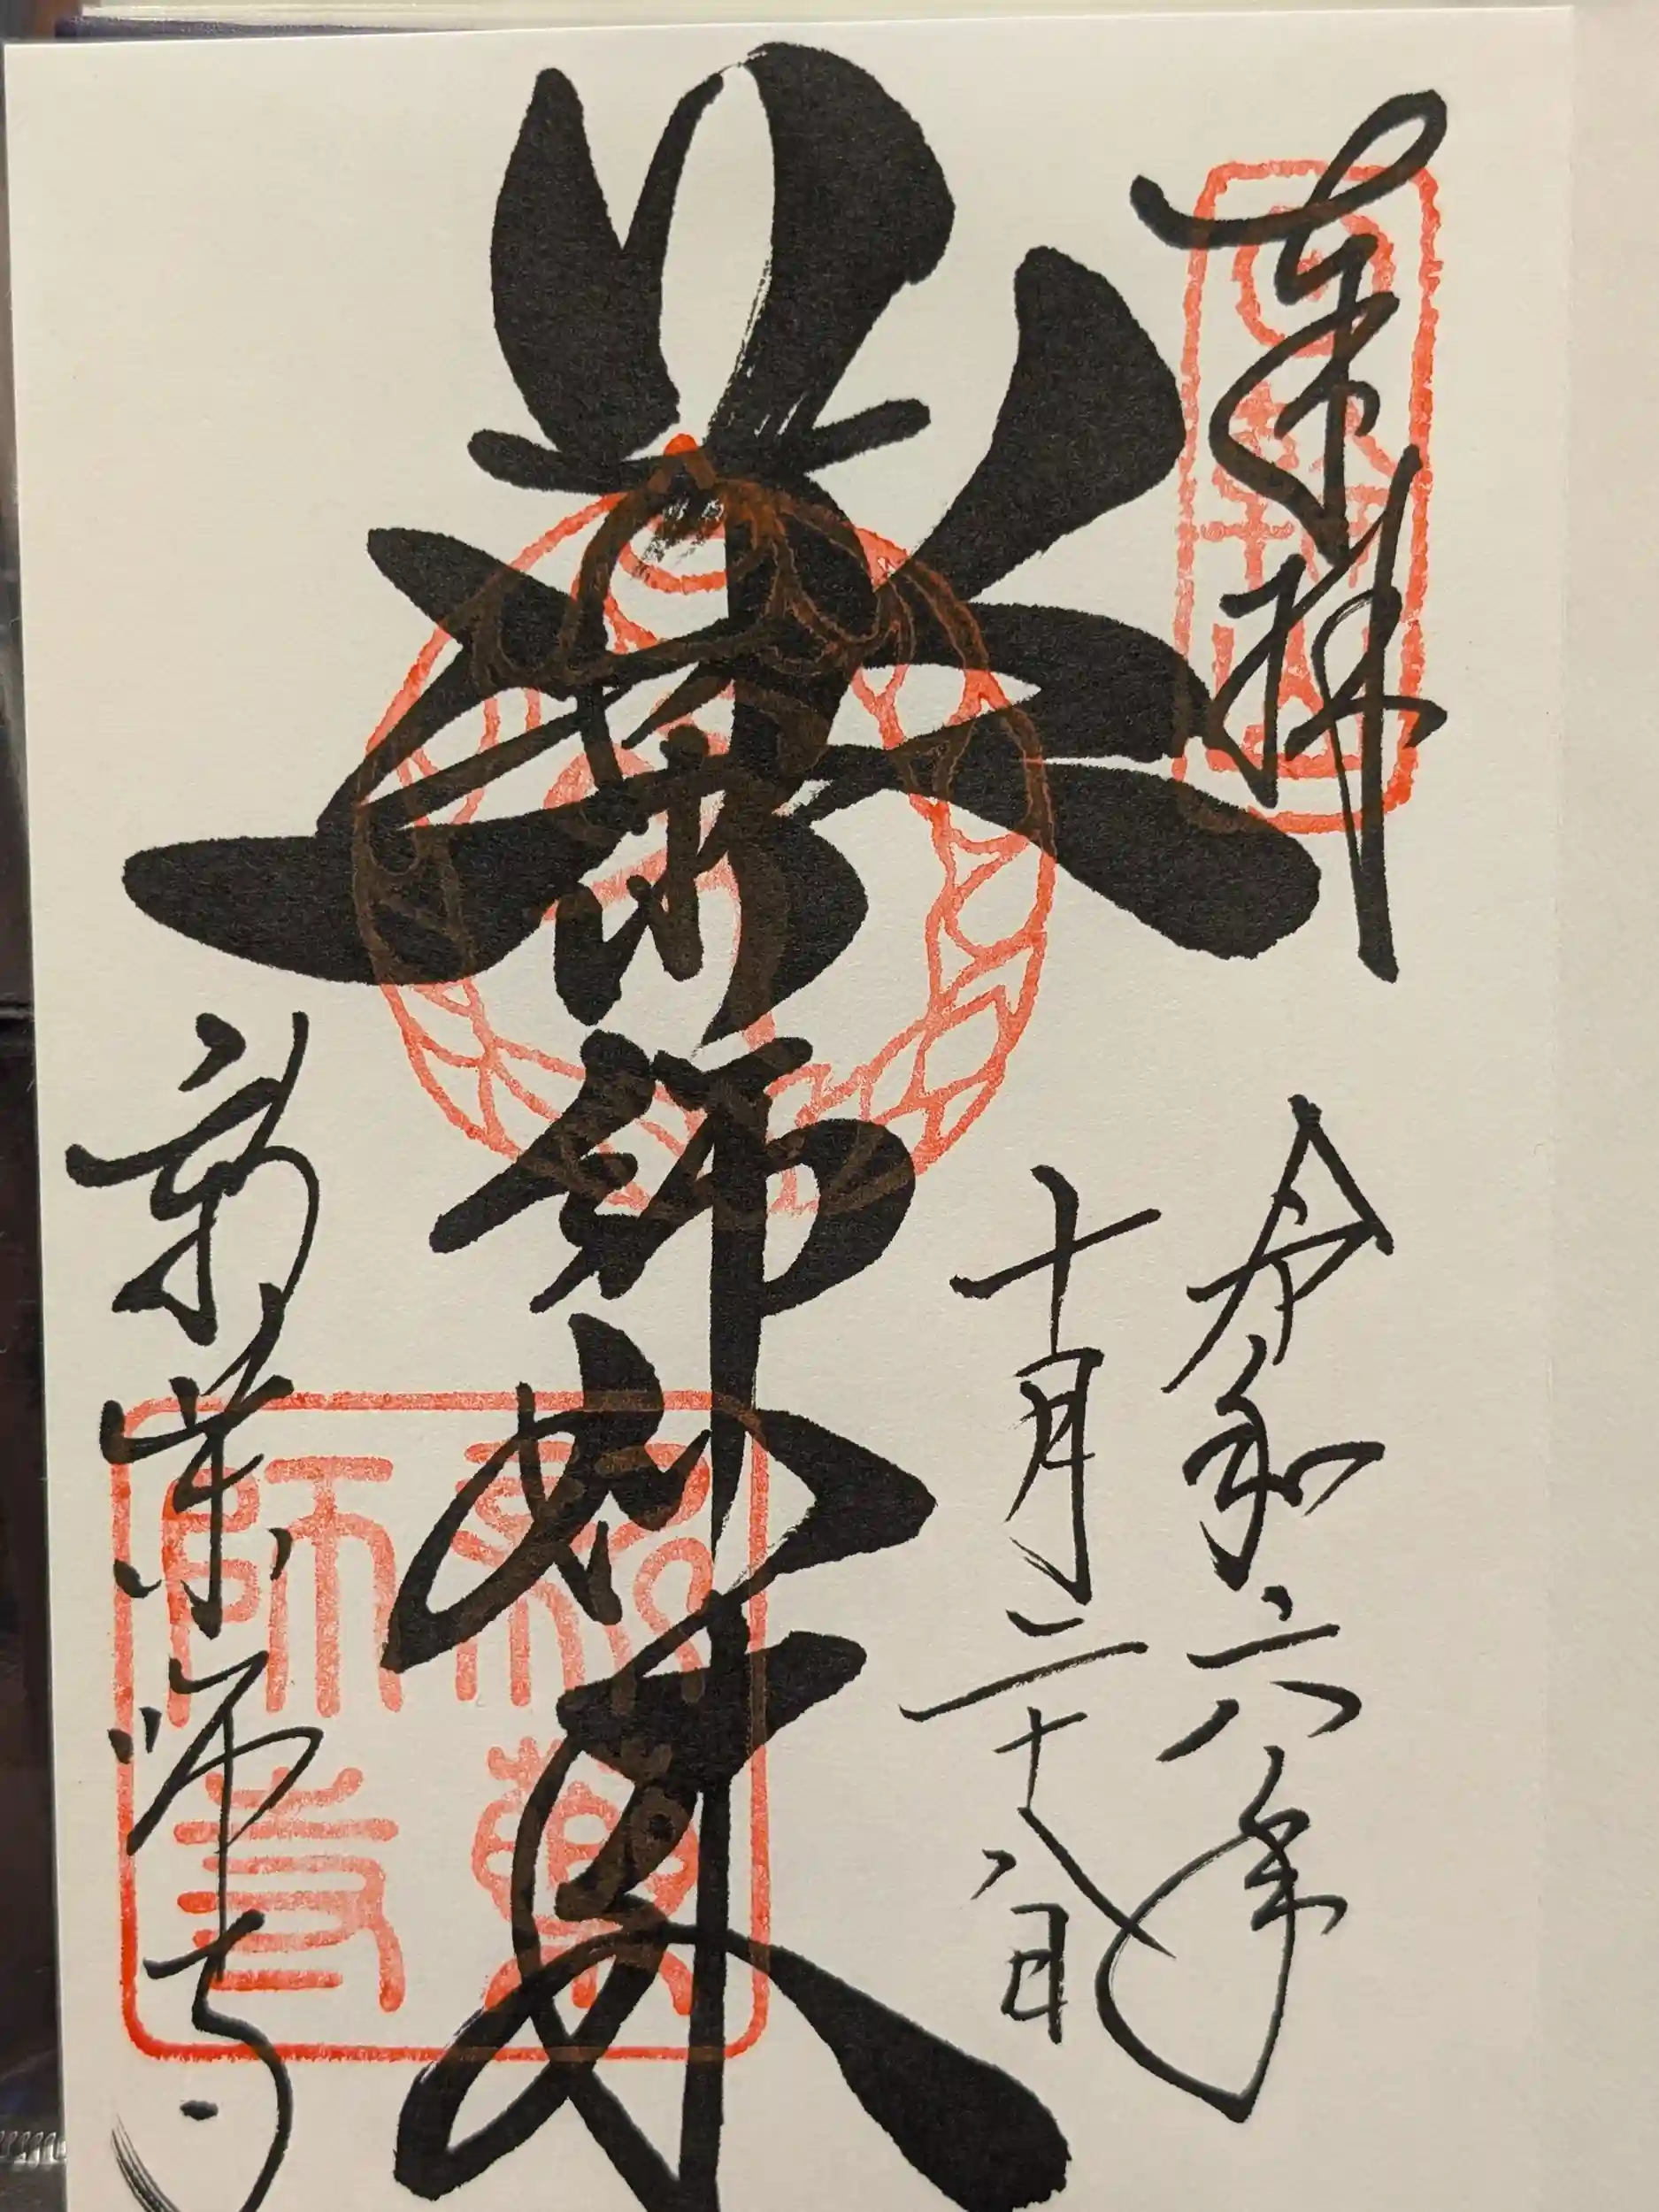 奉拝
令和六年
十月二十八日
薬師如来
新薬師寺
新薬師寺